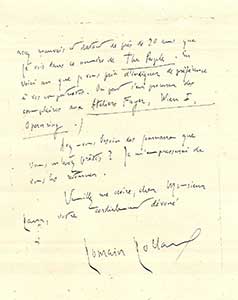 mes mauvais et datent de près de 20 ans que
j'ai vus dans ce numéro de The People. En
voici un que je vous prie d'indiquer de préférence
à ces compatriotes. On peut s'en procurer des
exemplaires aux Ateliers Fayer, Wien I,
Opernring.)
Avez-vous besoin des journaux que
vous m'avez prêtés? Je m'empresserai de
vous les retourner.
Veuillez me croire, cher Monsieur
votre cordialement dévoué
à
Romain Rolland